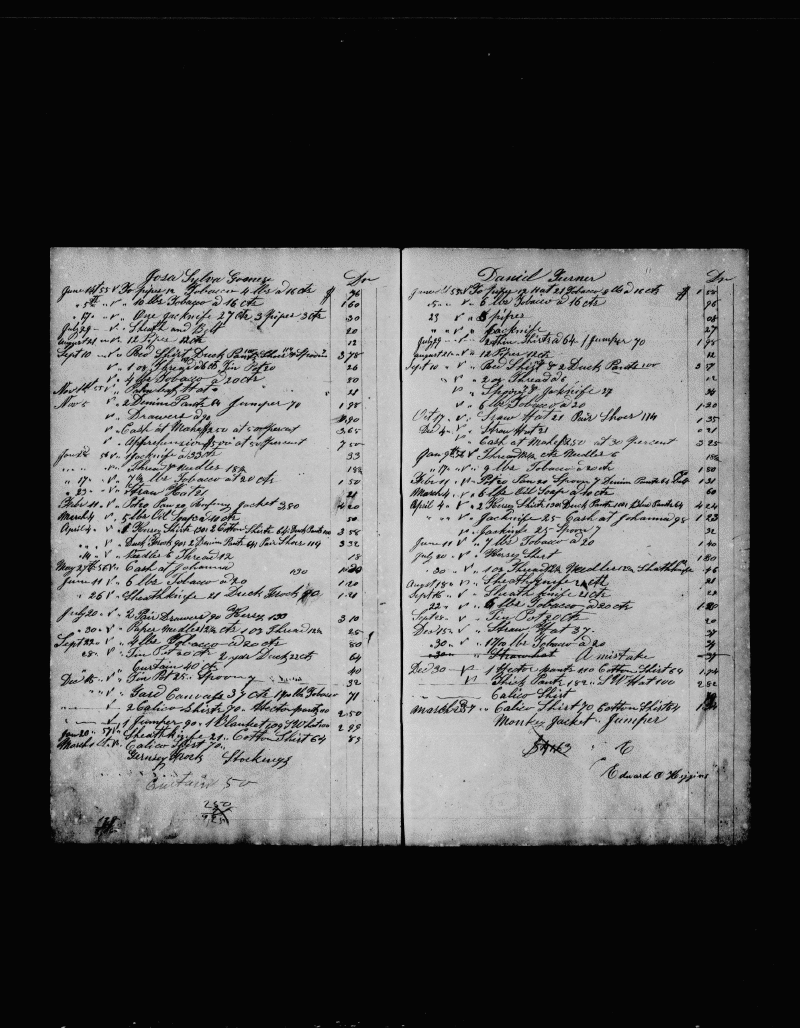 Josa Sylva Dr
June 1st 55 V To pipes 12 Tobacco 4 lbs a 16 cts 96
" 5th " V " 10 lbs Tobaco a 16 cts 1 60
" 17 " V " One Jacknife 27 cts 3 pipes 3 cts 30
July 29 " V " Sheath and Belt 20
August 21 " V " 12 Pipes 12 cts 12
Sept 10 " V " Red Shirt Duck Pants 3 78
V " 1 oz Thread 6 cts Tin Pot 20 26
V " 4 lbs Tobacco a 20 cts 80
V " Hat 21
Nov 5 V " 2 Denim Pants Jumper 70 1 98
V " Drawers a 90 90
V " Cash at Mahe a 50 percent 3 65
V " at 50 percent 7 50
V " Jacknife a 33 cts 33
V " Thread & Needles 18½ 18½
" 17 " V " 7½ lbs Tobacco at 20 cts 1 50
" 23 " V " Straw Hat 21 21
Febr 11 " V " Pot 20 Pan 20 Jacket 380 4 20
March 4 V " 5 lbs Oil Soap a 10 cts 50
April 4 " V " Kersey Shirt 130 2 Cotton Shirts 64 Duck Pants 100 3 58
" " V " Duck Frock 90 2 Denim Pants 64 Pair Shoes 114 3 32
" 14 " V " Needles 6 Thread 12 18
May 27th 56 V " Cash at Johanna 1 30
June 11 V " 6 lbs Tobaco a 20 1 20
" 26 V " Sheathknife 21 Duck Frock 90
July 20 " V " 2 Pair Drawers 90 Kersey 130 3 10
" 30 " V " Paper Needles 12½ cts 1 oz Thread 12½ 25
Sept 22 " V " 4 lbs Tobacco a 20 cts 80
28 " V " Tin Pot 20 cts 2 yds Duck 22 cts 64
Curtain 40 cts 40
Dec 15 " V " Tin Pot 25 " Spoon 7 32
" V " Yard Canvass 37 cts Tobacco 71
V " 2 Calico Shirts 70 " pants 110 2 50
V " 1 Jumper 90 " 1 Blanket S W hat 100 2 99
Jan 20 " 57 V " Sheathknife 21 " Cotton Shirt 64 85
March V " Calico Shirt 70,
Gernsey Frock Stockings
Curtain 50
250
Daniel Turner Dr
June 1st 55 V To pipes 12 Hat 21 Tobacco lbs a 16 cts 1
" 5 " V " 6 lbs Tobacco a 16 cts 96
23 V " 8 pipes 08
" " V " Jacknife 27
July 29 " V " 2 Thin Shirts a 64 / Jumper 70 1 98
August 21 " V " 12 Pipes 12 cts 12
Sept 10 " V " Red Shirt & 2 Duck Pants 100 3 7
" V " 2 oz Thread a 6 12
V " Spoon 7 & Jacknife 27
V " 6 lbs Tobacco a 20 1 20
Oct 17 " V " Straw Hat 21 Pair Shoes 114 1 35
Dec 4 " V " Straw Hat 21 21
V " Cash at Mahe 250 at 30 percent 3 25
V " Thread 12½ cts Needles 6 18½
" 17 " V " 9 lbs Tobacco a 20 cts 1 80
Febr 11 " V " Pot 20 Pan 20 Spoon 7 Denim Pants 64 1 31
March 4 " V " 6 lbs Oil Soap a 10 cts 60
April 4 " V " 2 Kersey Shirts 130 Duck Pants 100 Pants 64 4 24
" " V " Jacknife 25 " Cash at Johanna 98 1 23
V " Jacknife 25 " Spoon 7 32
June 11 V " 7 lbs Tobaco a 20 1 40
July 20 " V " Kersey Shirt 1 30
" 30 " V " 1 oz Thread 12½ Needles 12½ Sheathknife 46
August 18 " V " Sheathknife 21 cts 21
Sept 16 " V " Sheath knife 21 cts 21
22 " V " 6 lbs Tobacco a 20 cts 1 20
Sept 28 " V " Tin Pot 20 cts 20
Dec 15 " V " Straw Hat 37 "
" 30 " V " lbs Tobaco a 20
Straw hat A mistake
Dec 30 — V " 1 pants 110 Cotton Shirt 64 1 74
V " Thick Pants 182 " S W Hat 100 2 82
Calico Shirt
March V " Calico Shirt 70 Cotton Shirt 64 1 34
Monkey Jacket " Jumper
Edward Higgins